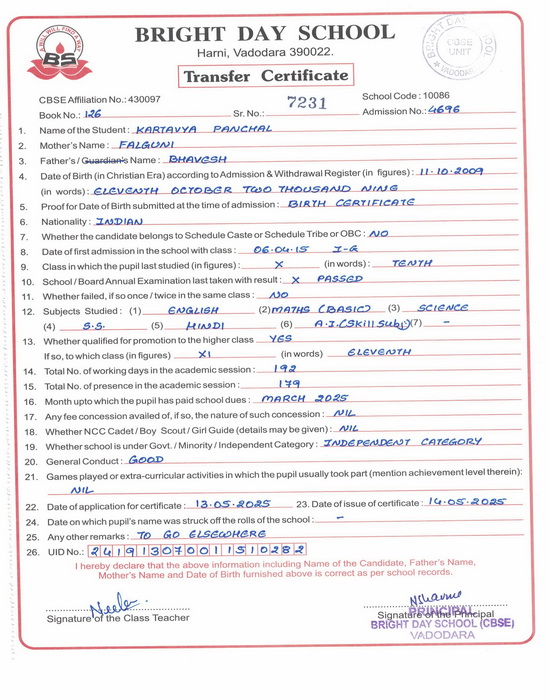 A WILL WILL FIND A WAY
BS
BRIGHT DAY SCHOOL
Harni, Vadodara 390022.
BRIGHT DAY SCHOOL
CBSE
UNIT
VADODARA
Transfer Certificate
CBSE Affiliation No.: 430097 7231 School Code : 10086
Book No.: 126 Sr. No.: Admission No.: 4696
1. Name of the Student : KARTAVYA PANCHAL
2. Mother's Name : FALGUNI
3. Father's / Guardian's Name : BHAVESH
4. Date of Birth (in Christian Era) according to Admission & Withdrawal Register (in figures) : 11-10-2009
(in words) : ELEVENTH OCTOBER TWO THOUSAND NING
5. Proof for Date of Birth submitted at the time of admission : BIRTH CERTIFICATE
6. Nationality : INDIAN
7. Whether the candidate belongs to Schedule Caste or Schedule Tribe or OBC : NO
8. Date of first admission in the school with class : 06.04.15 I-G
9. Class in which the pupil last studied (in figures) : X (in words) : TENTH
10. School / Board Annual Examination last taken with result : X PASSED
11. Whether failed, if so once / twice in the same class : NO
12. Subjects Studied : (1) ENGLISH (2) MATHS (BASIC) (3) SCIENCE
(4) S.S. (5) HINDI (6) A.I. (Skill Subj.) (7) -
13. Whether qualified for promotion to the higher class YES
If so, to which class (in figures) XI (in words) ELEVENTH
14. Total No. of working days in the academic session : 192
15. Total No. of presence in the academic session : 179
16. Month upto which the pupil has paid school dues : MARCH 2025
17. Any fee concession availed of, if so, the nature of such concession : NIL
18. Whether NCC Cadet / Boy Scout / Girl Guide (details may be given) : NIL
19. Whether school is under Govt. / Minority / Independent Category : INDEPENDENT CATEGORY
20. General Conduct : GOOD
21. Games played or extra-curricular activities in which the pupil usually took part (mention achievement level therein):
NIL
22. Date of application for certificate : 13.05.2025 23. Date of issue of certificate : 14.05.2025
24. Date on which pupil's name was struck off the rolls of the school : -
25. Any other remarks : TO GO ELSEWHERE
26. UID No.: 241913070011510282
I hereby declare that the above information including Name of the Candidate, Father's Name,
Mother's Name and Date of Birth furnished above is correct as per school records.
Signature of the Class Teacher
Signature of the Principal
PRINCIPAL
BRIGHT DAY SCHOOL (CBSE)
VADODARA